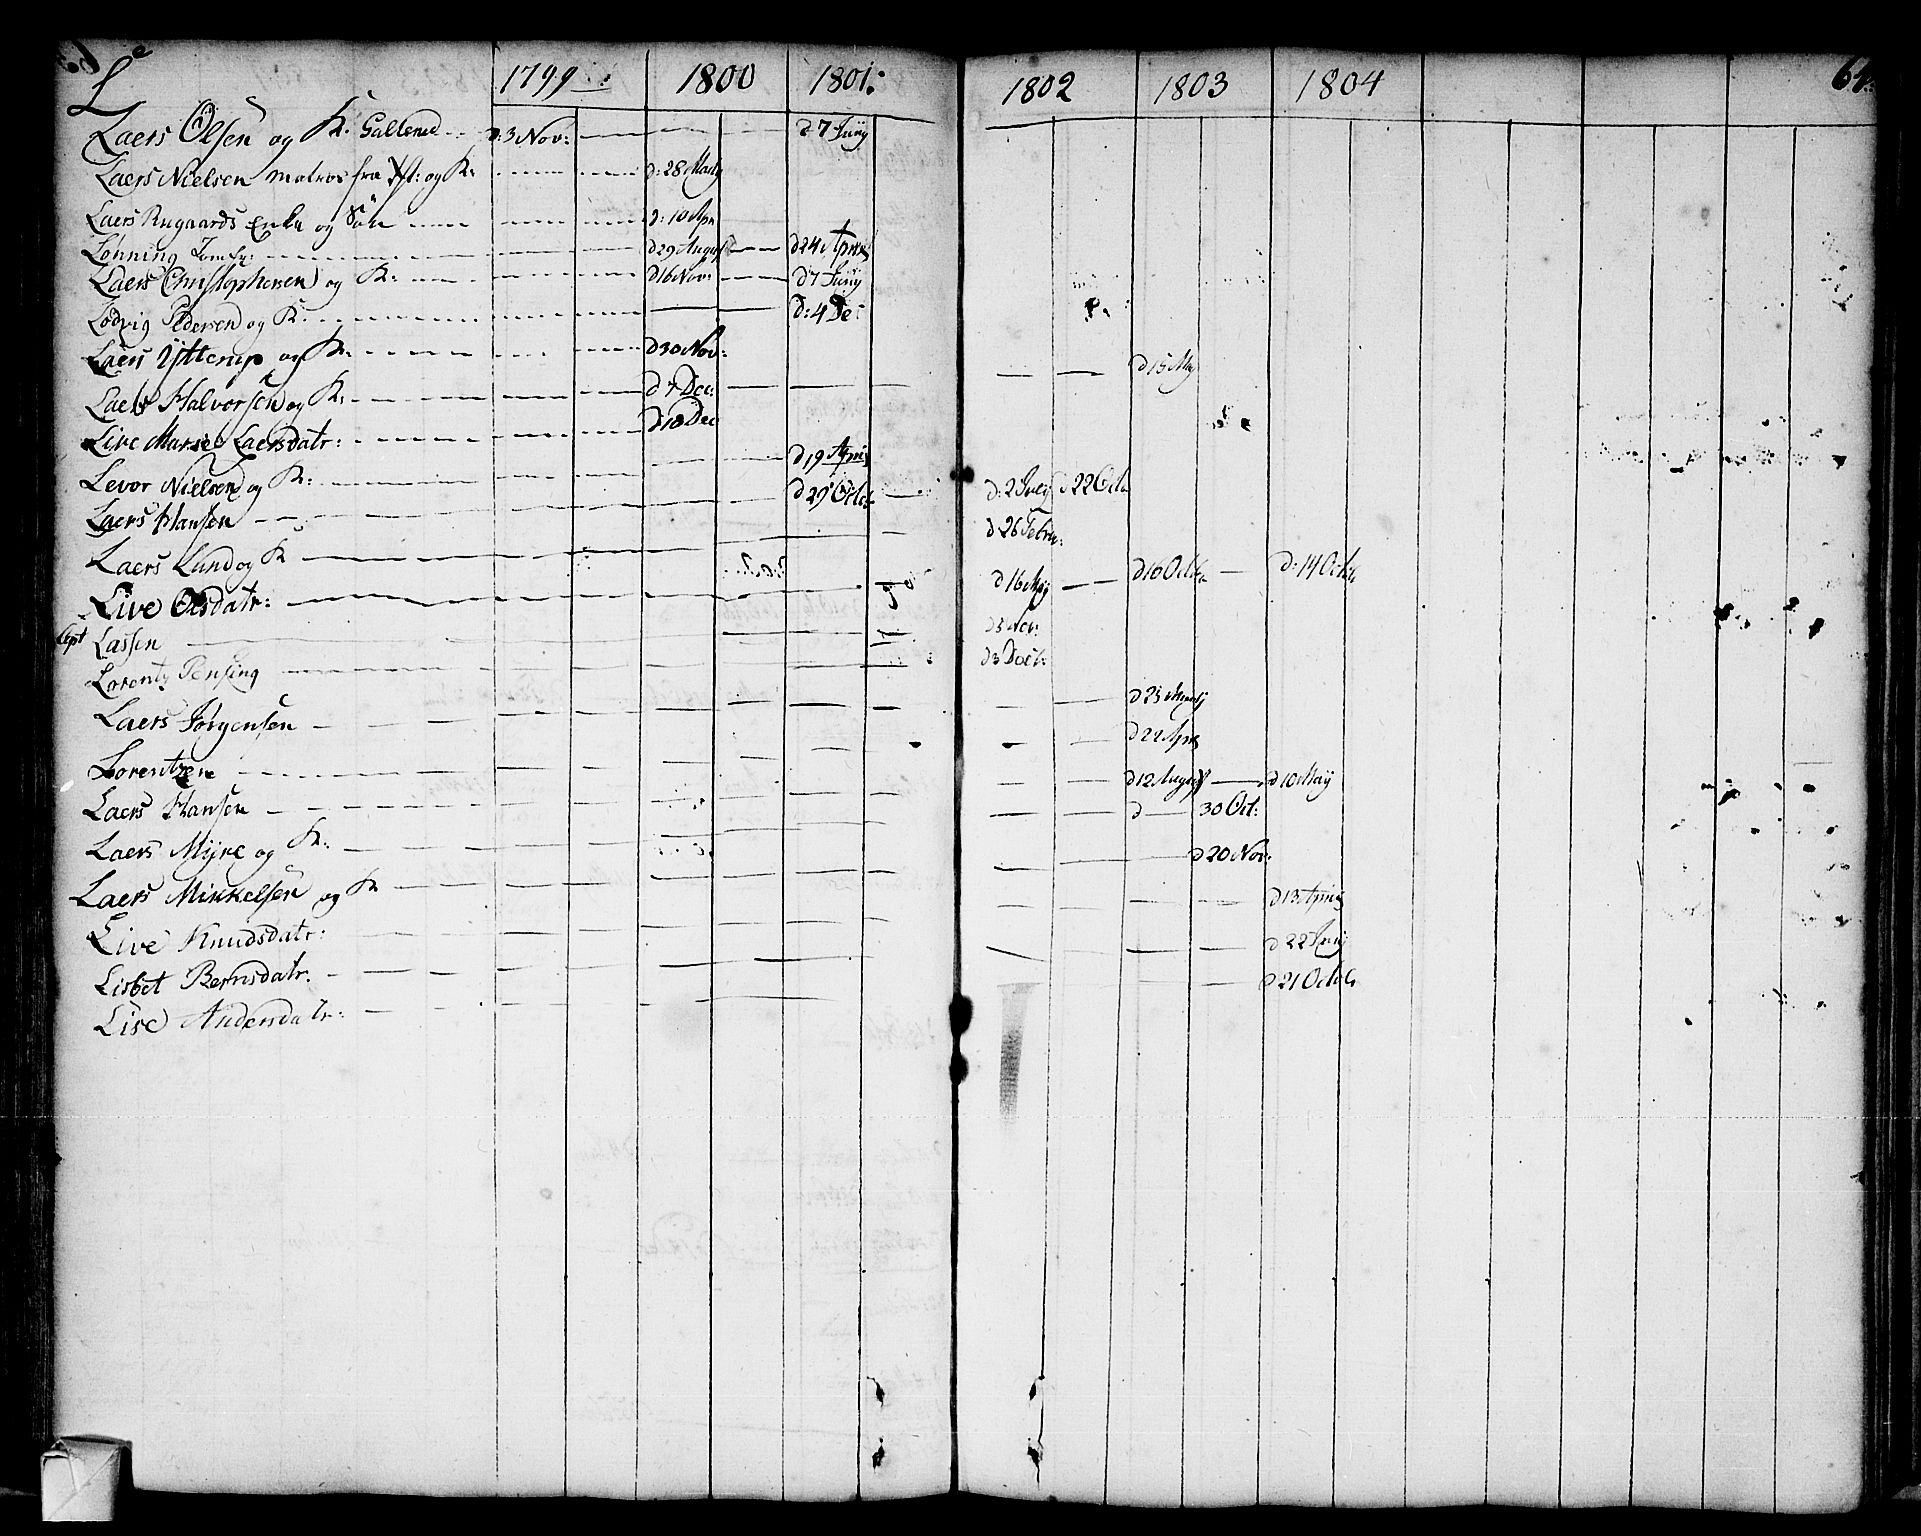 L
1799 1800 1801: 1802 1803 1804 64
Laers Olsen og K. d: 3 Nov: d 7 Juny
Laers Nielsen matros fra og K: d: 28 Marty
Laers Rugaards Enke og Sön d: 10 Apr
Lønning Jomfr: d 29 August d 24 Apriis
Laers Christophersen og K: d 16 Nov: d 7 Juny
Lodvig Pedersen og K. d: 4 De:
Laers Ytterup og K: d 30 Nov: d 15 May
Laers Halvorsen og K: d 7 Dec:
Live Marie Laersdatr: d 10 Dec
Levor Nielsen og K: d 19 Apris
Laers Hansen d 29 Octob d: 2 July d 22 Octb
Laers Lund og K d 26 Febru:
Live Olsdatr: d 16 May d 10 Octb d: 14 Octob
Cpt Lassen d 3 Nov:
Lorentz d 3
Laers Jörgensen d 23 Marty
Lorentzen d 22 Apris
Laers Hansen d 12 August d 10 Maÿ
Laers Mÿre og K: d 30 Oct:
Laers Mikkelsen og K d 20 Nov:
Live Knudsdatr: d 13 Apriis
Lisbet Bernsdatr: d 22 Juny
Lise Andersdatr: d 21 Octob